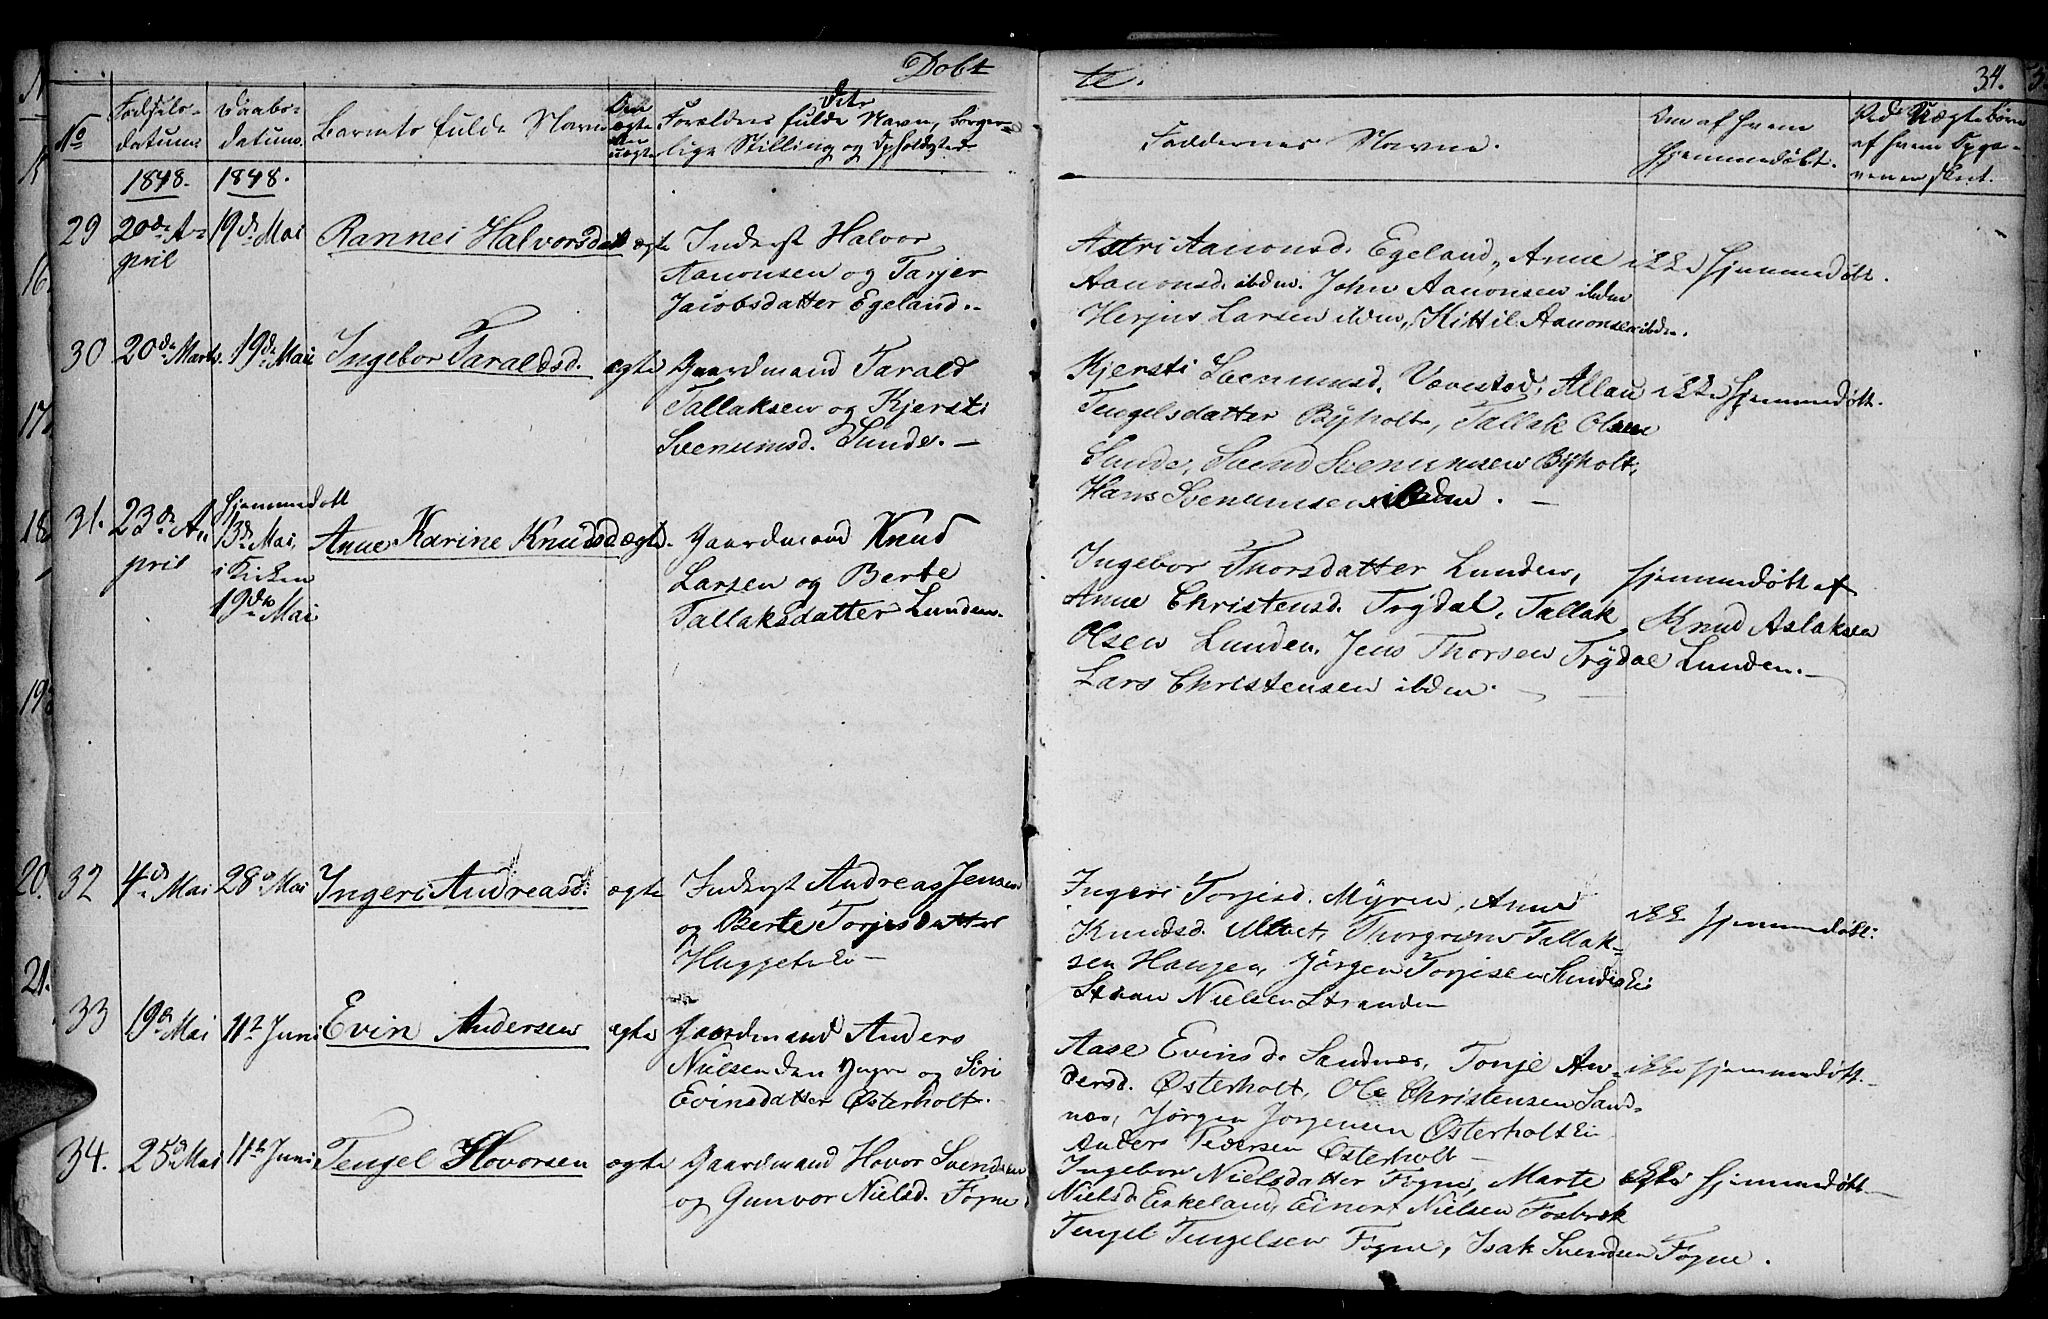 Døbte.
34.
No
Fødsels-
datum
Daabs-
datum
Barnets fulde Navn
Om
ægte
eller
uægte
Forældres fulde Navn, Borger-
lige Stilling og Opholdsted.
Faddernes Navne.
Om af hvem
hjemmedøbt.
Ved Uægte Børn
af hvem Opga-
ven er skeet.
1848.
1848.
29
20de A-
pril
19de Mai
Rannei Halvorsdatt
ægte
Inderst Halvor
Aanonsen og Tarjer
Jacobsdatter Egeland.
Astri Aanonsd. Egeland, Anne
Aanonsd. ibdm. John Aanonsen ibdm
Herjus Larsen ibdm, Kittil Aanonsen ibdm.
ikke hjemmedøbt.
30
20de Marts.
19de Mai
Ingebor Taraldsd.
ægte
Gaardmand Tarald
Tallaksen og Kjersti
Svenumsd. Sunde. —
Kjersti Svenumsd. Vævestad, Allau
Tengelsdatter Byholt, Tallak Olsen
Sunde, Svend Svenumsen Byholt,
Hans Svenumsen ibdm. —
ikke hjemmedøbt.
31.
23de A-
pril
hjemmedøbt
13de Mai,
i Kirken
19de Mai
Anne Karine Knudsd.
ægte.
Gaardmand Knud
Larsen og Berte
Tallaksdatter Lunden.
Ingebor Thorsdatter Lunden,
Anne Christensd. Trydal, Tallak
Olsen Lunden, Jens Thorsen Trydal
Lars Christensen ibdm.
hjemmedøbt af
Knud Aslaksen
Lunden.—
32
4de Mai
28de Mai
Ingeri Andreasd.
ægte
Inderst Andreas Jensen
og Berte Torjesdatter
—
Ingeri Torjesd. Myren, Anne
Knudsd. Thorgrim Tallak-
sen Haugen, Jørgen Torjesen
Nielsen Stranden
ikke hjemmedøbt.
33
19de Mai
11te Juni
Evin Andersen
ægte
Gaardmand Anders
Nielsen den Yngre og Siri
Evinsdatter Østerholt.
Aase Evinsd. Sandnæs, Tonje An-
dersd. Østerholt, Ole Christensen Sand-
næs, Jørgen Jørgensen Østerholt
Anders Pedersen Østerholt —
ikke hjemmedøbt.
34.
25de Mai
11te Juni
Tengel Hovorsen
ægte
Gaardmand Hovor Svendsen
og Gunvor Nielsd. Fogne
Ingebor Nielsdatter Fogne, Marte
Nielsd. Eskeland, Einert Nielsen Fosbæk
Tengel Tengelsen Fogne, Isak Svendsen Fogne.
ikke hjemmedøbt